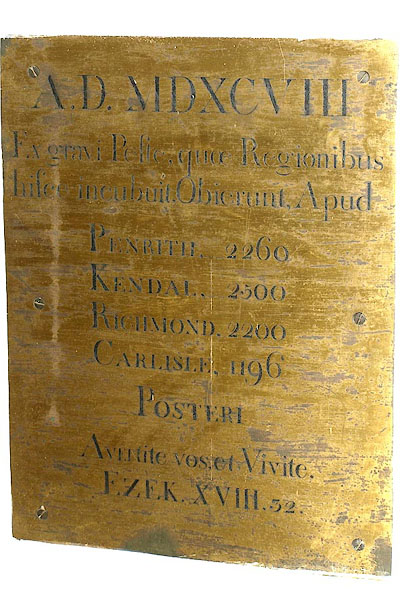 A.D. MDXCVIII
Ex gravi Peste, quæ Regionibus
hisce incubuit, Obierunt, Apud
PENRITH. 2260
KENDAL. 2500
RICHMOND. 2200
CARLISLE. 1196
POSTERI
Avertite vos, et Vivite.
EZEK. XVIII. 32.